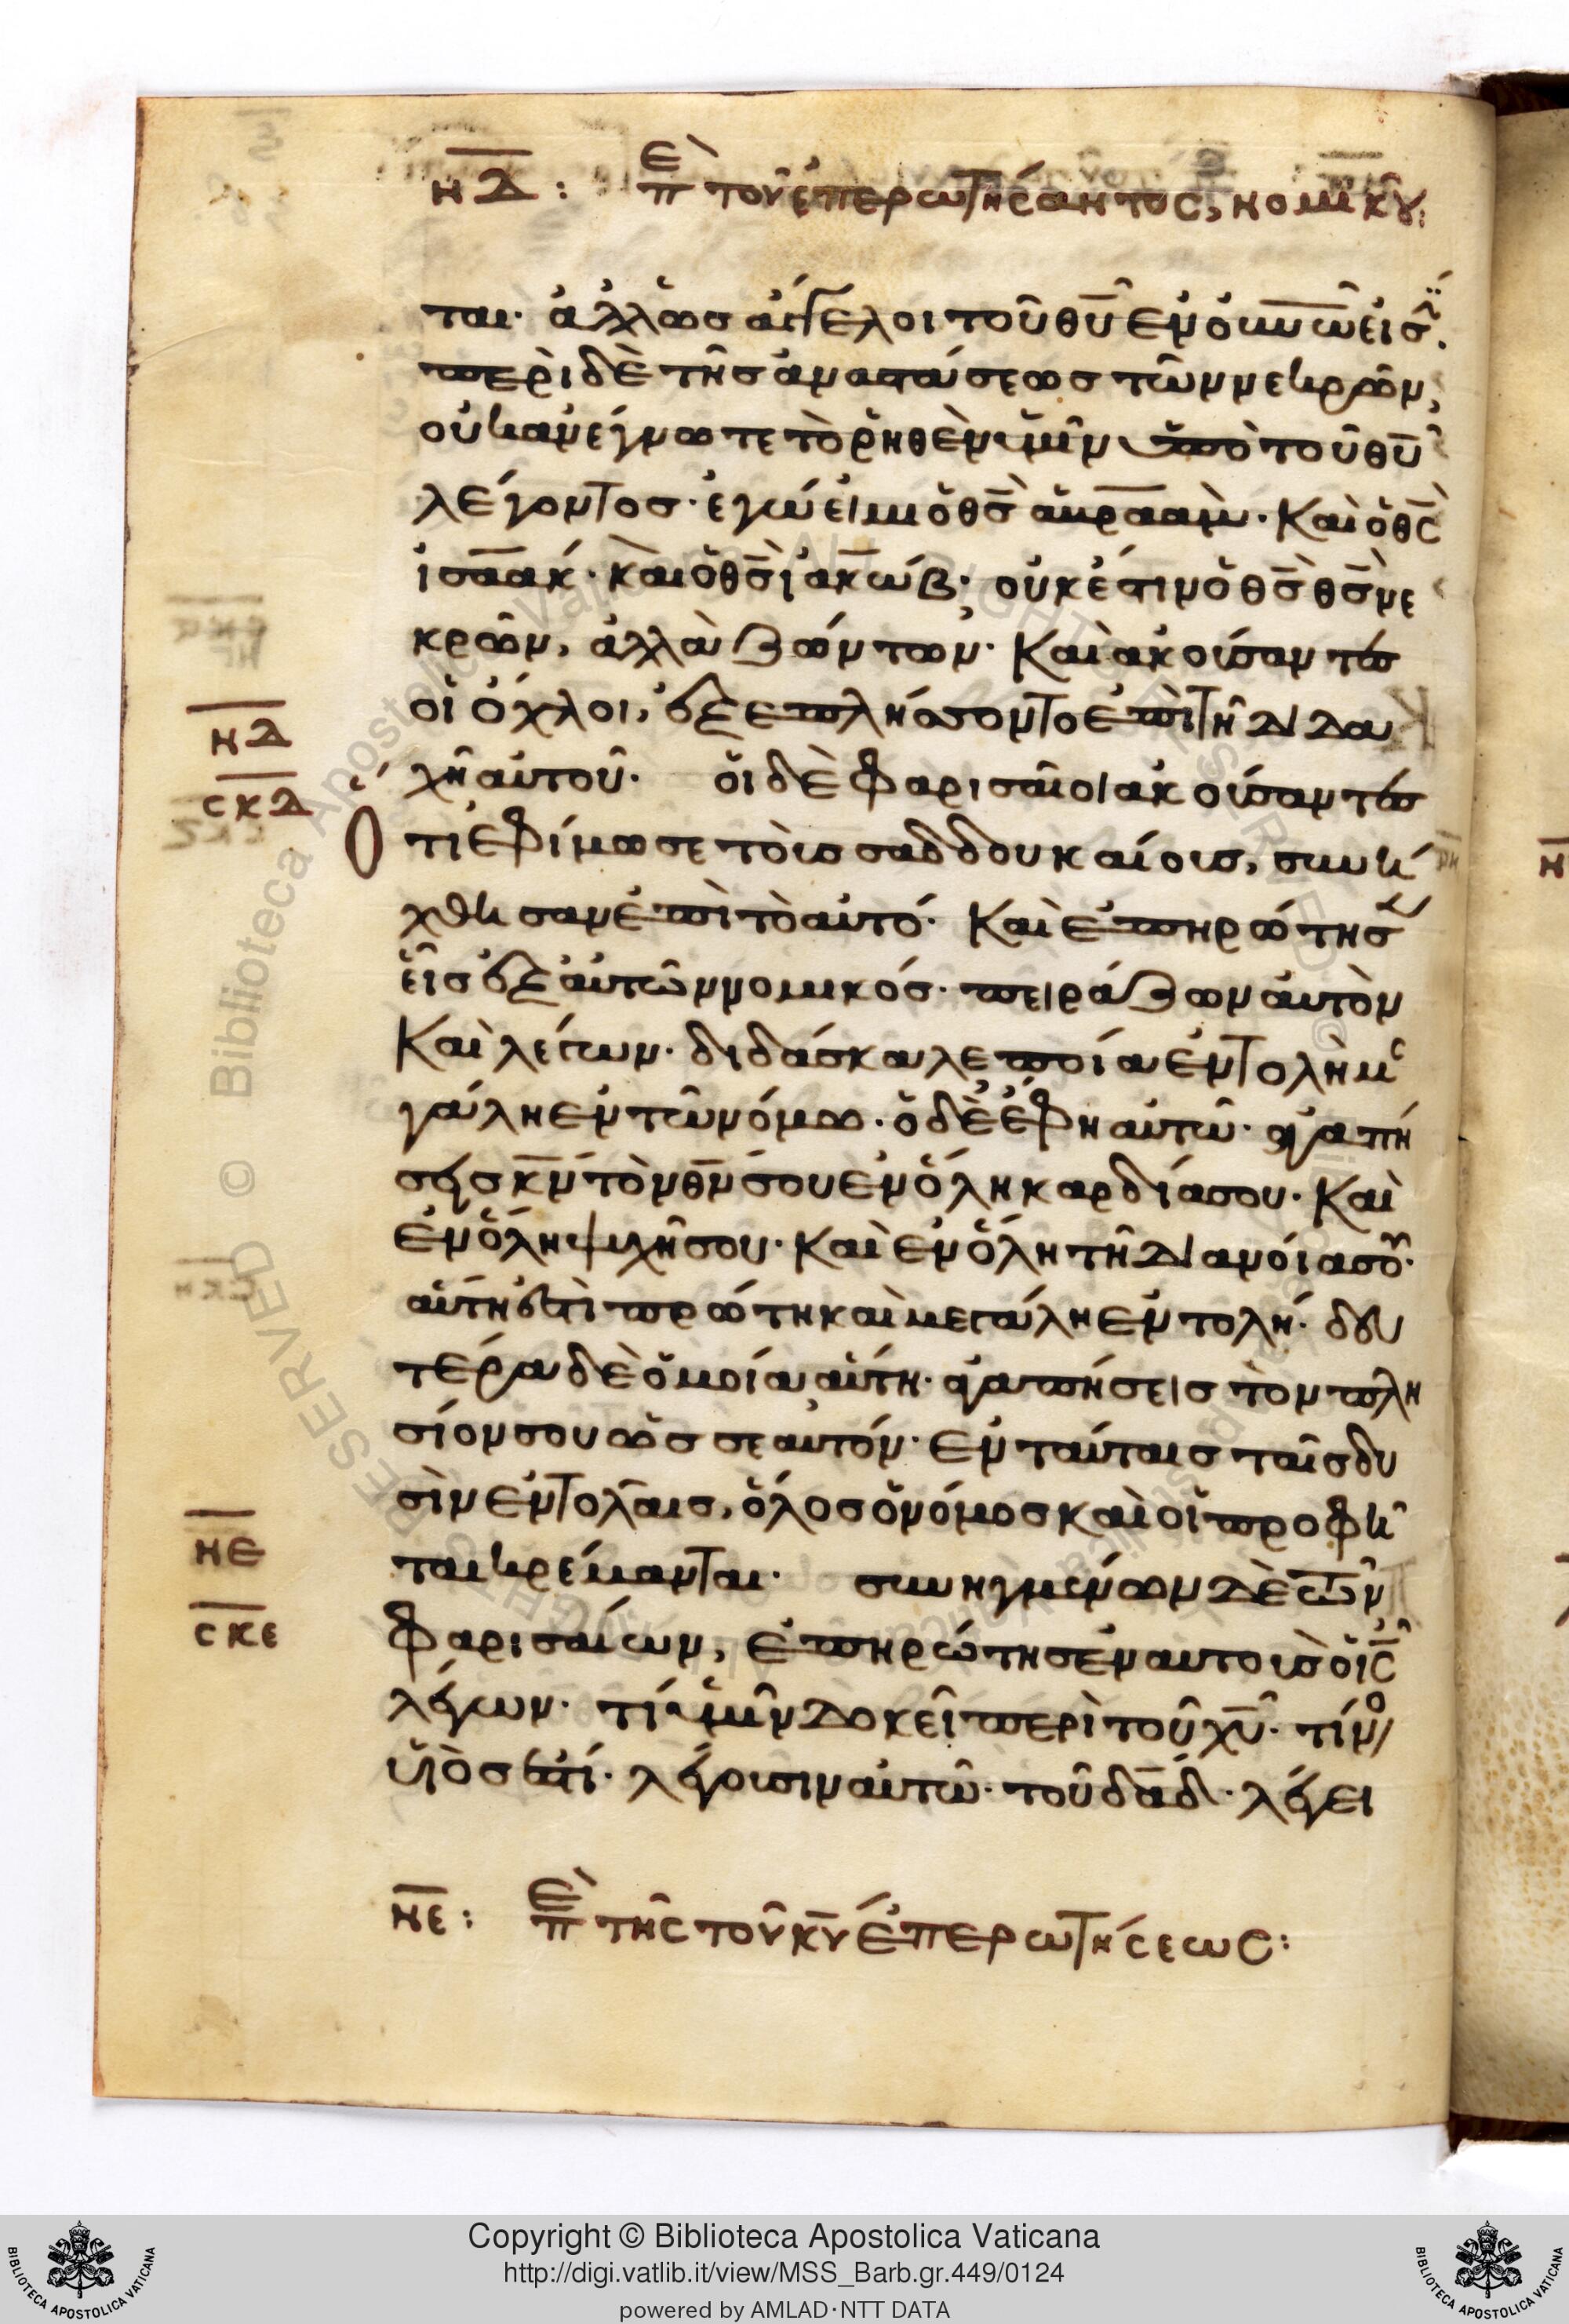 ΚΔ: ΠῈ τοῦ ἐπερωτήσαντος, κομικοῦ:
ται· ἀλλ' ὡσ ἄγγελοι τοῦ θυ̅ ἐν ὀυνω̅ εἰσῒ.
περὶ δὲ τῆσ ἀναστάσεωσ τῶν νεκρῶν,
οὐκ ἀνέγνωτε τὸ ῥηθὲν ὑμῖν ὑπὸ τοῦ θυ̅
λέγοντοσ· ἐγώ εἰμι ὁ θσ̅ ἀβρααμ̀· Καὶ ὁ θς̅
ἰσαακ́· καὶ ὁ θσ̅ ἰακώβ· οὐκ ἔστιν ὁ θσ̅ θσ̅ νε
κρῶν, ἀλλὰ ζώντων· Καὶ ἀκούσαντεσ
οἱ ὄχλοι, ἐξεπλήσσοντο ἐπὶ τῆ διδα
χῆ αὐτοῦ· οἱ δὲ φαρισαῖοι ἀκούσαντεσ
ΚΔ
ϹΚΔ
Ὅ
τι ἐφίμωσε τοὺσ σαδδουκαίουσ, συνή
χθησαν ἐπὶ τὸ αυτό· Καὶ ἐπηρώτησεν
εἷσ ἐξ αὐτῶν νομικόσ· πειράζων αὐτὸν
Καὶ λέγων· διδάσκαλε ποία ἐντολὴ με
γάλη ἐν τῶ νόμω· ὁ δὲ ἔφη αὐτῶ· ἀγαπή
σεισ κν̅ τὸν θν̅ σου ἐν ὅλη καρδία σου· Καὶ
ἐν ὅλη ψυχῆ σου· Καὶ ἐν ὅλη τῆ διανοία σου·
αὕτη ἐστὶ πρώτη καὶ μεγάλη ἐντολή· δευ
τέρα δὲ ὁμοία αὕτη· ἀγαπήσεισ τὸν πλη
σίον σου ὡσ σεαυτόν· ἐν ταύταισ ταῖσ δυ
σὶν ἐντολαῖσ, ὅλοσ ὁ νόμοσ καὶ οἱ προφῆ
ται κρέμανται· συνηγμένων δὲ τῶν
ΚΕ
ϹΚΕ
φαρισαίων, ἐπηρώτησεν αυτοὺσ ὁ ις̅
λέγων· τί ὑμῖν δοκεῖ περὶ τοῦ χυ̅· τίνοσ
υἱόσ ἐστί· λέγουσιν αὐτῶ· τοῦ δαδ̅· λέγει
ΚΕ: ΠῈ τῆς τοῦ κυ̅ ἐπερωτήσεως:
© Biblioteca Apostolica Vaticana ALL RIGHTS RESERVED
Copyright © Biblioteca Apostolica Vaticana
http://digi.vatlib.it/view/MSS_Barb.gr.449/0124
powered by AMLAD·NTT DATA
BIBLIOTECA APOSTOLICA VATICANA
BIBLIOTECA APOSTOLICA VATICANA